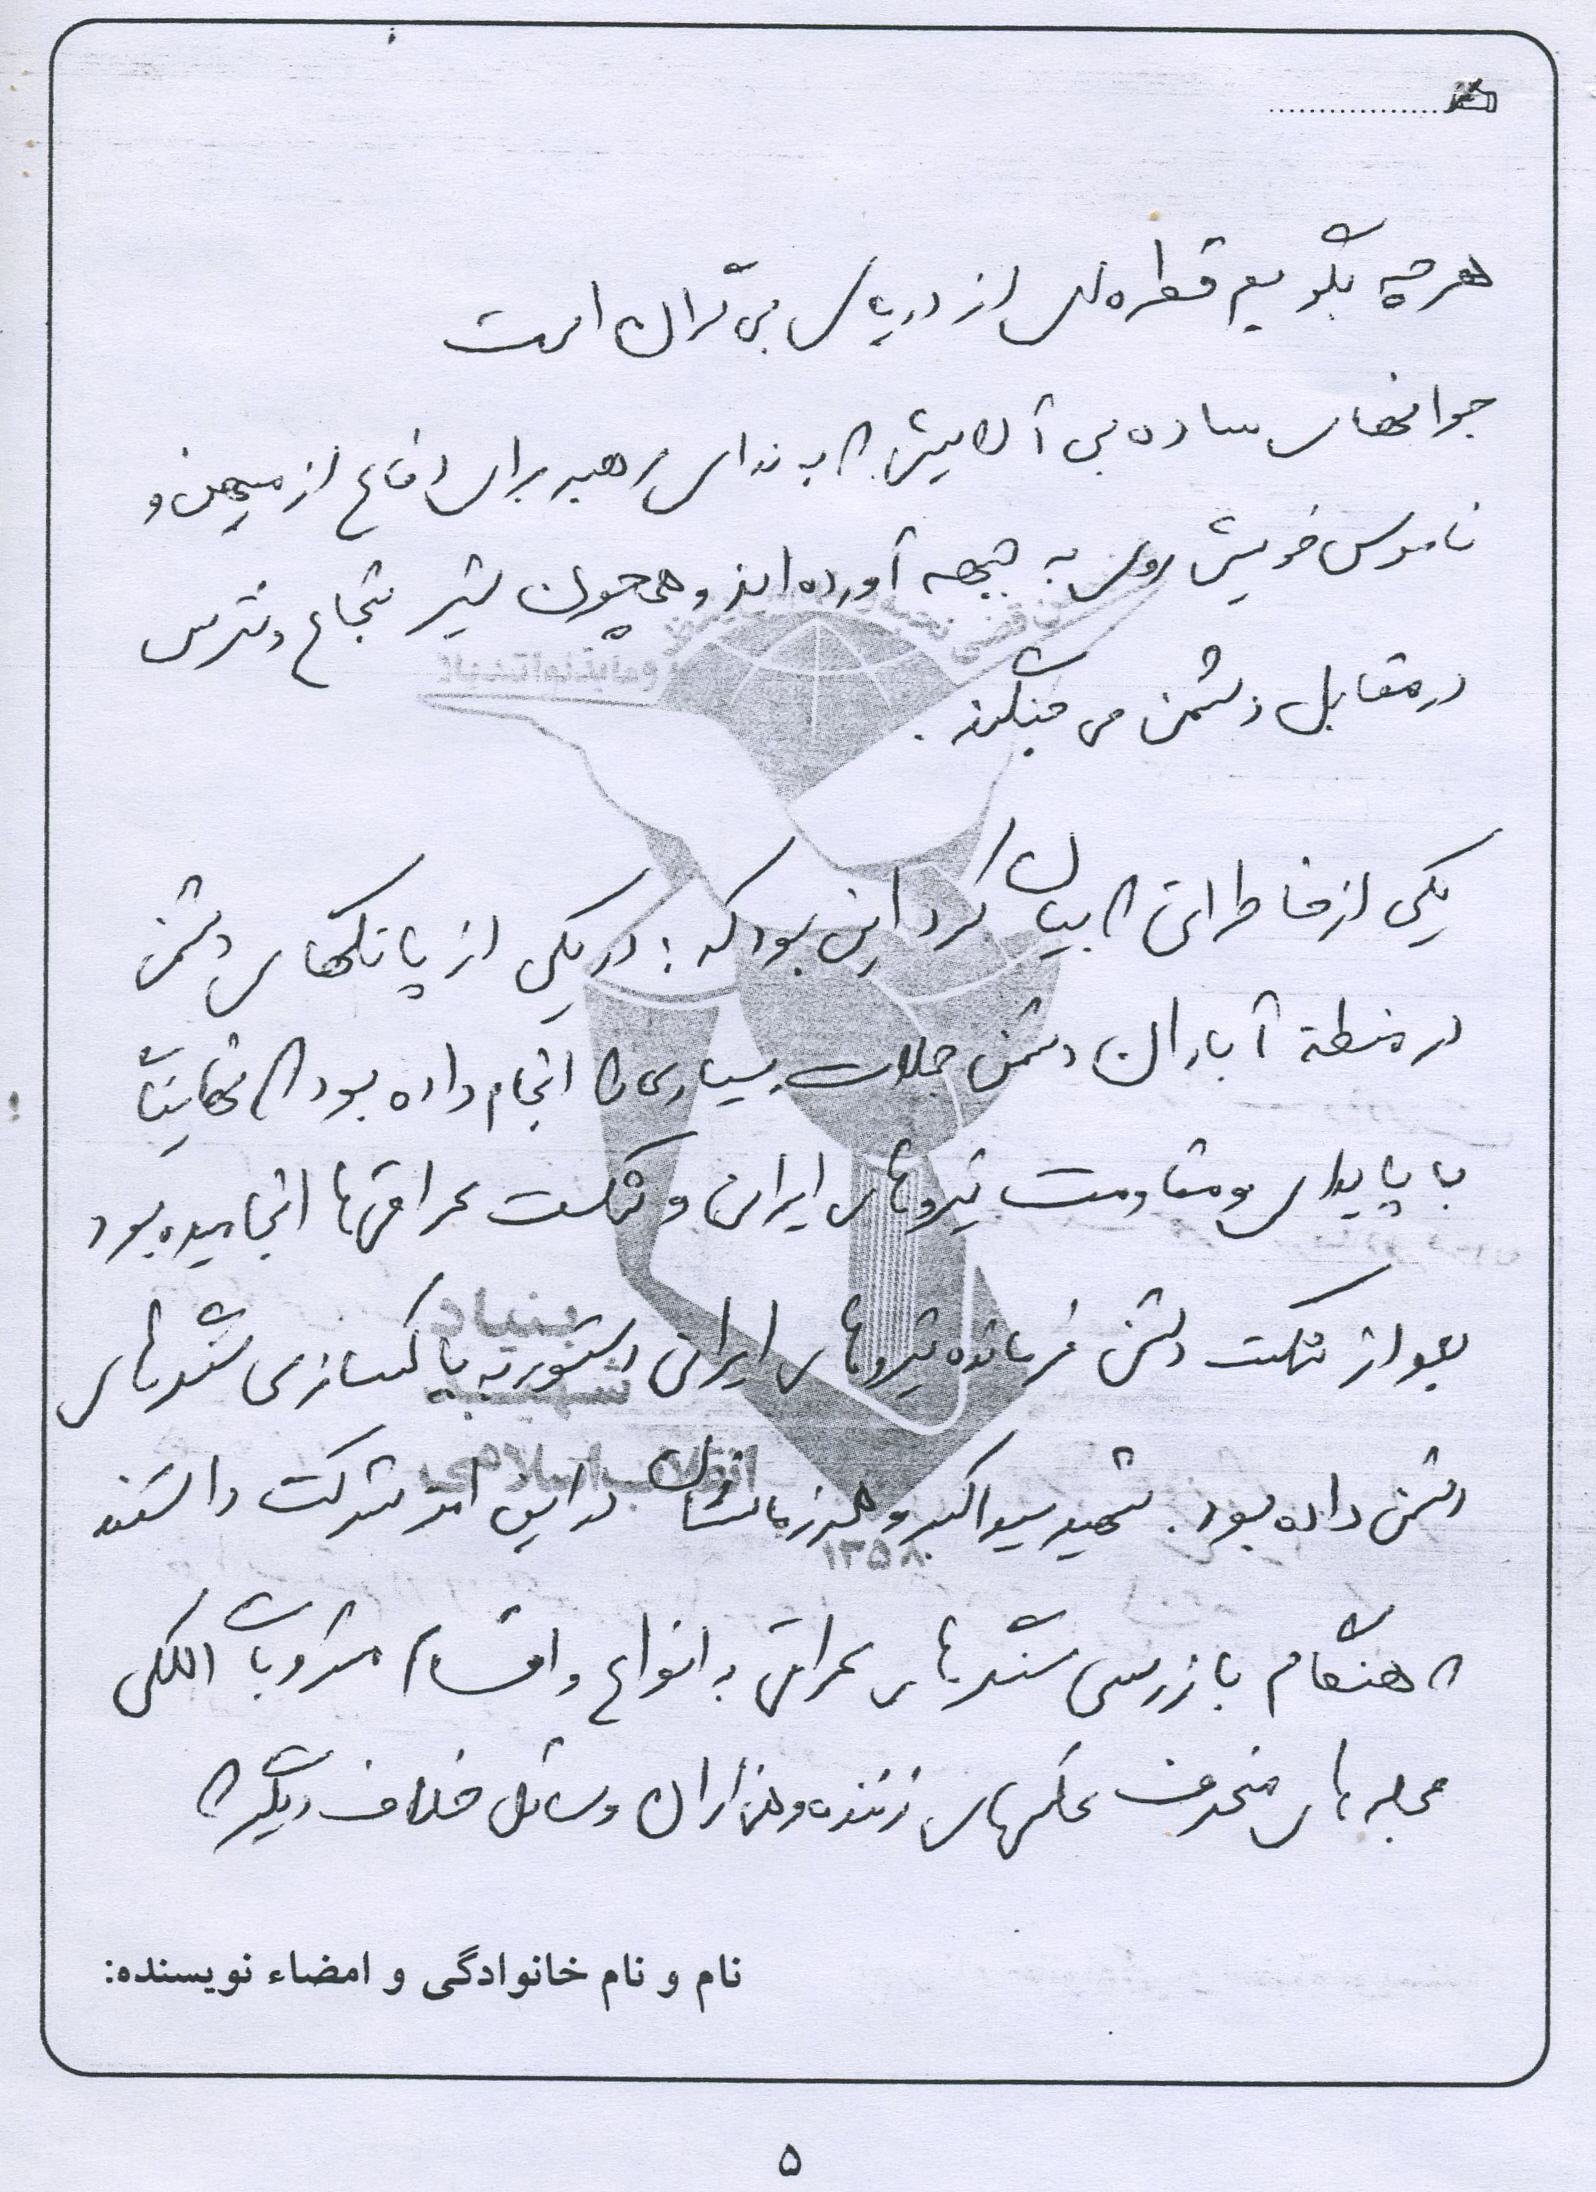 هر چه بگوییم قطره ای از دریای بی کران است
جوانهای ساده بی آلایش که به ندای رهبر برای دفاع از میهن و
ناموس خویش روی به جبهه آورده اند و همچون شیر شجاع و نترس
در مقابل دشمن می جنگند .
یکی از خاطراتی که بیان کرد این بود که : در یکی از پاتکهای دشمن
در منطقه آبادان دشمن حملات بسیاری را انجام داده بود که نهایتاً
با پایداری و مقاومت نیروهای ایران و شکست عراقیها انجامیده بود
بعد از شکست دشمن فرمانده نیروهای ایرانی دستور به پاکسازی سنگرهای
دشمن داده بود . شهید سید اکبر و همرزمانشان در این امر شرکت داشتند
که هنگام بازرسی سنگرهای عراقی به انواع و اقسام مشروبات الکلی
مجله های منحرف عکسهای زننده و هزاران وسائل خلاف دیگر که
نام و نام خانوادگی و امضاء نویسنده:
۵
بنیاد
شهید
انقلاب اسلامی
۱۳۵۸